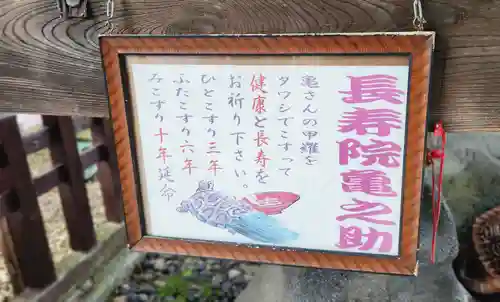 長寿院亀之助
亀さんの甲羅を
タワシでこすって
健康と長寿を
お祈り下さい。
ひとこすり三年
ふたこすり六年
みこすり十年延命